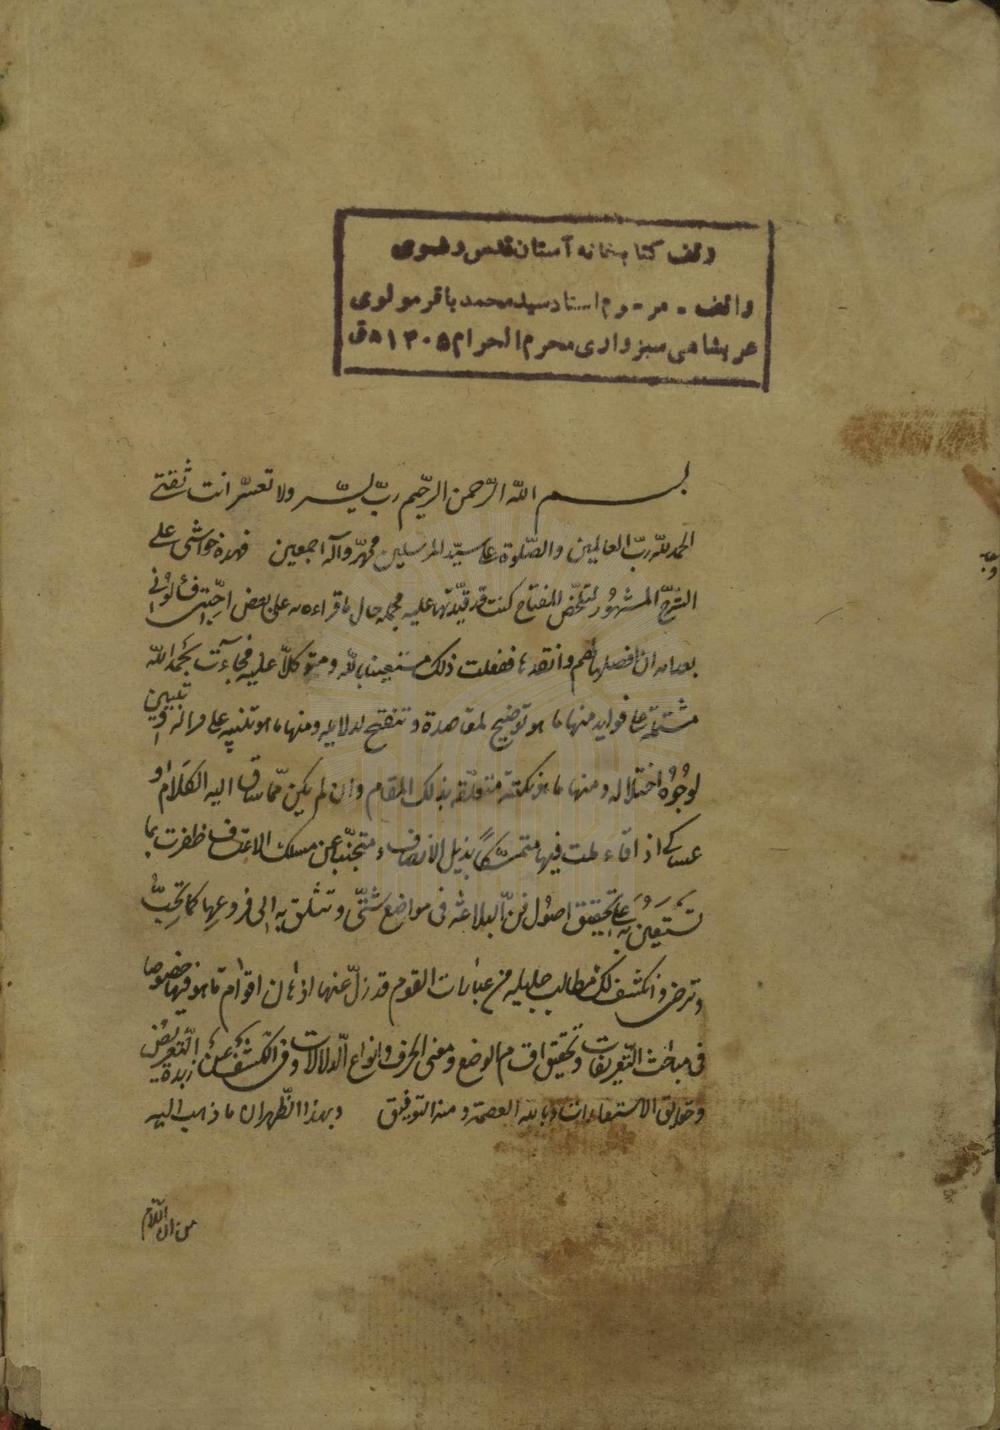 وقف کتابخانه آستان قدس رضوی
واقف - مرحوم استاد سید محمد باقر مولوی
عربشاهی سبزواری محرم الحرام ۱۴۰۵ ه ق
بسم الله الرّحمن الرحیم ربّ یسّر ولا تعسّر انت ثقتی
الحمد لله ربّ العالمین والصّلوة علی سیّد المرسلین محمّد وآله اجمعین فهذه حواشی علی
الشرح المشهور لتلخیص المفتاح کنت قد قیّدتها علیه مجملة حال ما قراءه علی بعض احبّتی فسألونی
بعد ان افصلها لهم وانقدها ففعلت ذلک مستعینا بالله ومتوکلاً علیه فجاءت بحمد الله
مشتملة علی فواید منها ما هو توضیح لمقاصده وتنقیح لدلایله ومنها ما هو تنبیه علی مزالّه وتبیین
لوجوه اختلاله ومنها ما هو نکتة متعلّقة بذلک المقام وان لم یکن ممّا ساق الیه الکلام و
عساک اذا تأملت فیها متمسّکاً بذیل الانصاف ومتجنّبا عن مسلک الاعتساف ظفرت بما
تستعین به علی تحقیق اصول فنّ البلاغة فی مواضع شتّی وتتسلق به الی فروعها کما تحبّ
وترضی وانکشف لک مطالب جلیله من عبارات القوم قد زلّ عنها اذهان اقوام ما هو فیها خصوصا
فی مباحث التعریفات وتحقیق اقسام الوضع ومعنی الحرف وانواع الدلالات وفی الکشف عن زبدة التعریض
وحقایق الاستعارات وبالله العصمة ومنه التوفیق وبهذا الظهر ان ما ذهب الیه
من ان اللام